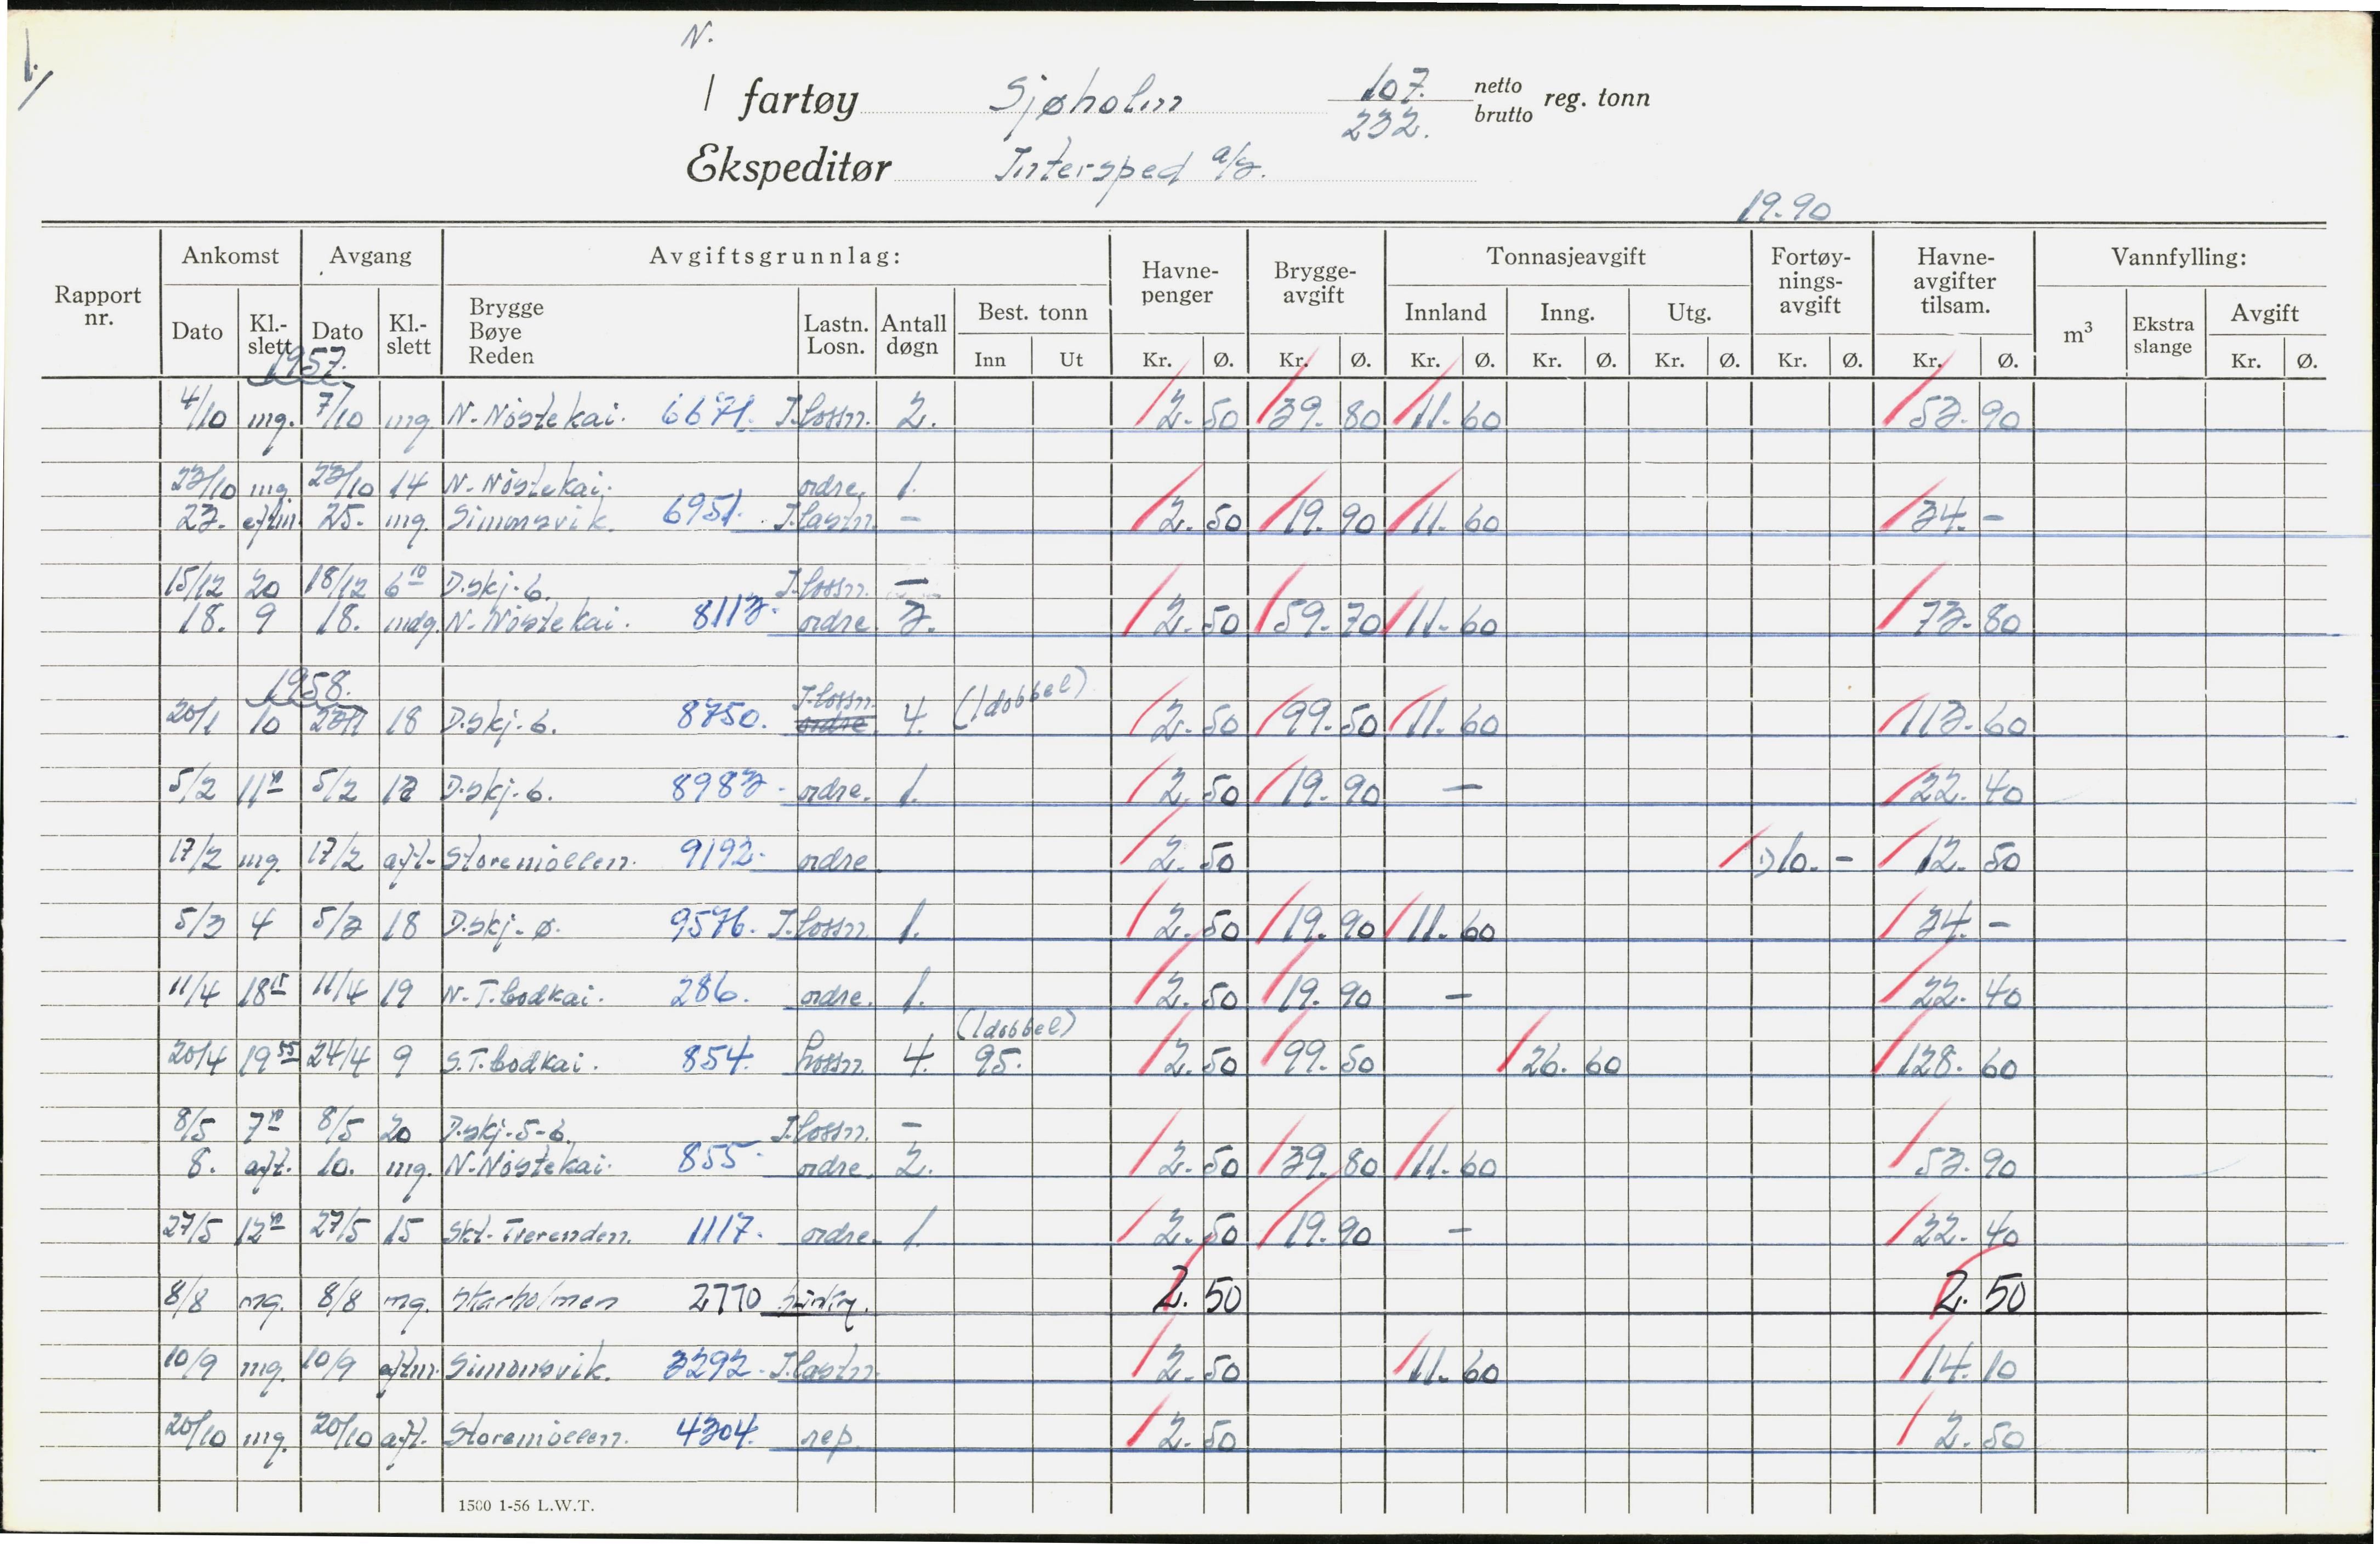 1./
N.
/ fartøy Sjøholm 107. netto reg. tonn
232. brutto
Ekspeditør Intersped a/s.
19.90
Rapport nr. Ankomst Avgang Avgiftsgrunnlag: Havne-penger Brygge-avgift Tonnasjeavgift Fortøy-nings-avgift Havne-avgifter tilsam. Vannfylling:
Dato Kl.-slett Dato Kl.-slett Brygge Bøye Reden Lastn. Losn. Antall døgn Best. tonn Innland Inng. Utg. m³ Ekstra slange Avgift
Inn Ut Kr. Ø. Kr. Ø. Kr. Ø. Kr. Ø. Kr. Ø. Kr. Ø. Kr. Ø. Kr. Ø.
1957.
4/10 mg. 7/10 mg N. Nöstekai. 6671. I.lossn. 2. 2.50 39.80 11.60 53.90
23/10 mg. 23/10 14 N. Nöstekai. ordre. 1.
23. eftm. 25. mg. Simonsvik. 6951. I.lastn. - 2.50 19.90 11.60 34.-
15/12 20 18/12 6 10 D.skj. 6. I.lossn. -
18. 9 18. mdg. N. Nöstekai. 8113. ordre. 3. 2.50 59.70 11.60 73.80
1958.
I.lossn. (1 dobbel)
20/1 10 23/1 18 D.skj. 6. 8750. ordre 4. 2.50 99.50 11.60 113.60
5/2 11 5/2 13 D.skj. 6. 8983. ordre. 1. 2.50 19.90 - 22.40
17/2 mg. 17/2 aft. Storemöllen. 9192. ordre 2.50 1) 10.- 12.50
5/3 4 5/3 18 D.skj. ø. 9576. I.lossn. 1. 2.50 19.90 11.60 34.-
11/4 18 15 11/4 19 N.T.bodkai. 286. ordre. 1. 2.50 19.90 - 22.40
(1 dobbel)
20/4 19 55 24/4 9 S.T.bodkai. 854. Lossn 4. 95. 2.50 99.50 26.60 128.60
8/5 7 8/5 20 D.skj. 5-6. I.lossn. -
8. aft. 10. mg. N. Nöstekai. 855. ordre. 2. 2.50 39.80 11.60 53.90
27/5 12 27/5 15 Skt. Tverenden. 1117. ordre. 1. 2.50 19.90 - 22.40
8/8 mg. 8/8 mg. Skarholmen 2770 2.50 2.50
10/9 mg. 10/9 eftm. Simonsvik. 3292. I.lastn. 2.50 11.60 14.10
20/10 mg. 20/10 aft. Storemöllen. 4304. rep. 2.50 2.50
1500 1-56 L.W.T.